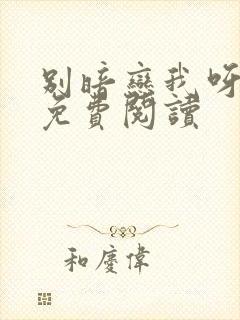 别暗戀我呀
免費閱讀
和慶偉